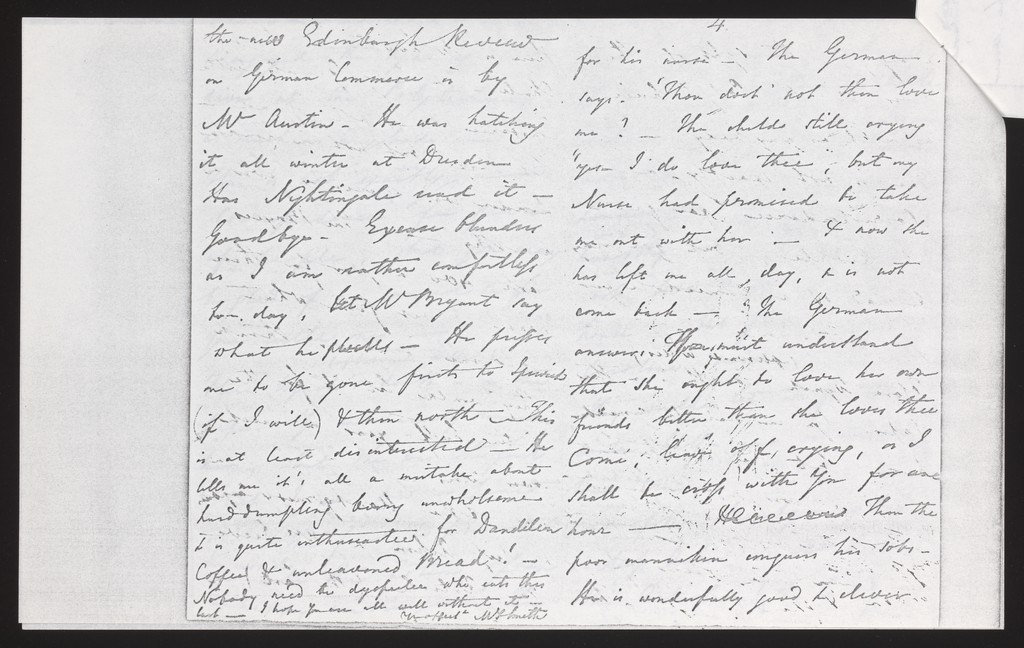 the new Edinburgh Review
on German Commerce is by
Mr Austin - He was hatching
it all winter at Dresden
Has Nightingale read it -
Goodbye - Excuse blunders
as I am rather comfortless
to-day, Let Mr Bryant say
what he pleases - He presses
me to be gone first to Ipswich
(if I will) & then north - This
is at least disinterested - He
tells me it's all a mistake about
hard dumpling being unwholesome
& is quite enthusiastic for Dandilion
Coffee & unleavened Bread! -
Nobody need be dyspeptic who eats this
last - I hope you are all well without it -
Mr Smith
4
for his nurse - The German
says - "Thou dost not then love
me? - The child still crying
"yes - I do love thee", but my
Nurse had promised to take
me out with her - & now she
has left me all day, & is not
come back - The German
answers: must understand
that she ought to love her own
friends better than she loves thee
Come, leave off crying, or I
shall be cross with you for an
hour - Then the
poor mannikin conquers his sobs -
He is wonderfully good & clever